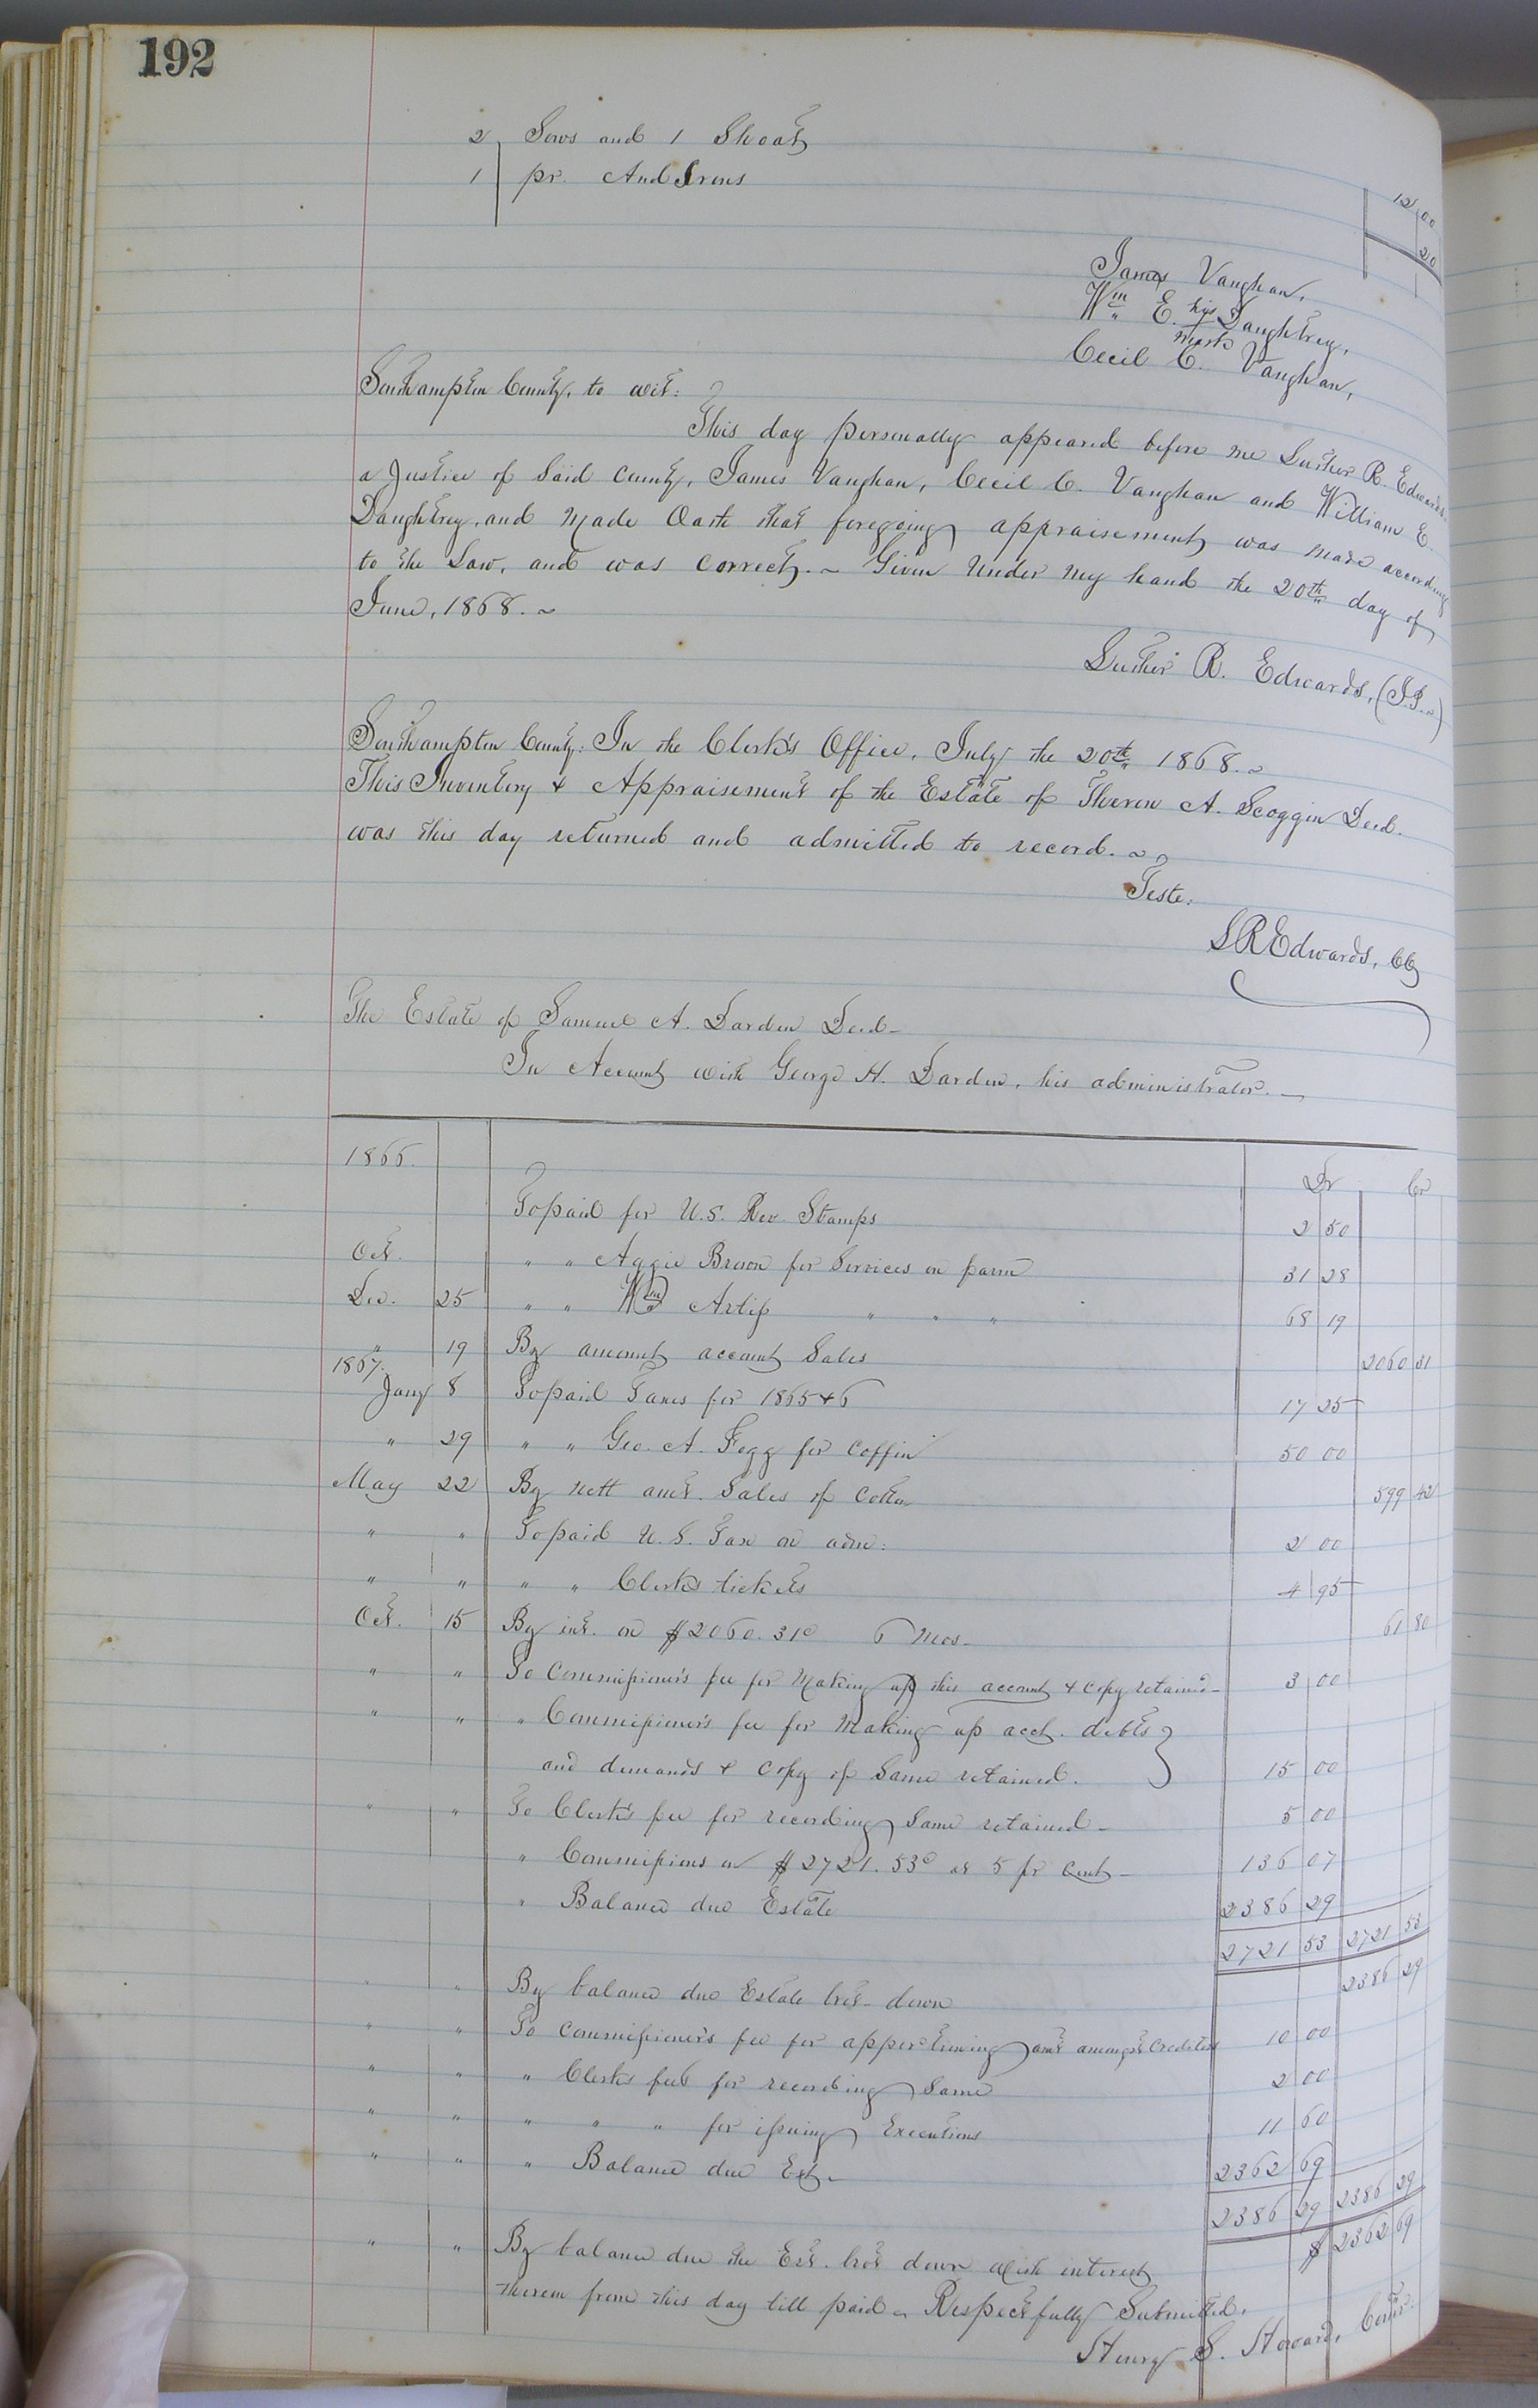 192
2 Sows and 1 Shoat 12 00
1 pr. And Irons 20
James Vaughan,
Wm E. his mark Daughtrey,
Cecil C. Vaughan,
Southampton County, to wit:
This day personally appeared before me Luther R. Edwards
a Justice of Said County, James Vaughan, Cecil C. Vaughan and William E.
Daughtrey, and made Oath that foregoing appraisement was made according
to the Law, and was correct. ~ Given under my hand the 20th day of
June, 1868. ~
Luther R. Edwards, (J.P.)
Southampton County: In the Clerk's Office, July the 20th 1868. ~
This Inventory & Appraisement of the Estate of Theron A. Scoggin Decd.
was this day returned and admitted to record. ~
Teste:
L R Edwards, CC
The Estate of Samuel A. Darden Decd -
In Account with George H. Darden, his administrator. -
1866. Dr Cr
To paid for U.S. Rev. Stamps 2 50
Oct. " " Aggie Brown for Services on farm 31 28
Dec. 25 " " Wm Artis " " " 68 19
" 19 By amount account Sales 2060 31
1867.
Jany 8 To paid Taxes for 1865 & 6 17 25
" 29 " " Geo. A. Fogg for Coffin 50 00
May 22 By nett amt. Sales of Cotton 599 42
" " To paid U.S. Tax on adm: 2 00
" " " " Clerks tickets 4 95
Oct. 15 By int. on $2060.31c 6 Mos - 61 80
" " To Commissioner's fee for Making up this account & copy retained - 3 00
" " " Commissioner's fee for Making up acct. debts
and demands & Copy of Same retained. 15 00
" " To Clerk's fee for recording Same retained - 5 00
" Commissions on $2721.53c at 5 pr Cent - 136 07
" Balance due Estate 2386 29
2721 53 2721 53
" " By balance due Estate brot. down 2386 29
" " To Commissioner's fee for apportioning amt amongst Creditors 10 00
" " " Clerks fees for recording Same 2 00
" " " " " for issuing Executions 11 60
" " " Balance due Est - 2362 69
2386 29 2386 29
" " By balance due the Est. brot down with interest $ 2362 69
thereon from this day till paid - Respectfully Submitted,
Henry S. Howard, Comr.